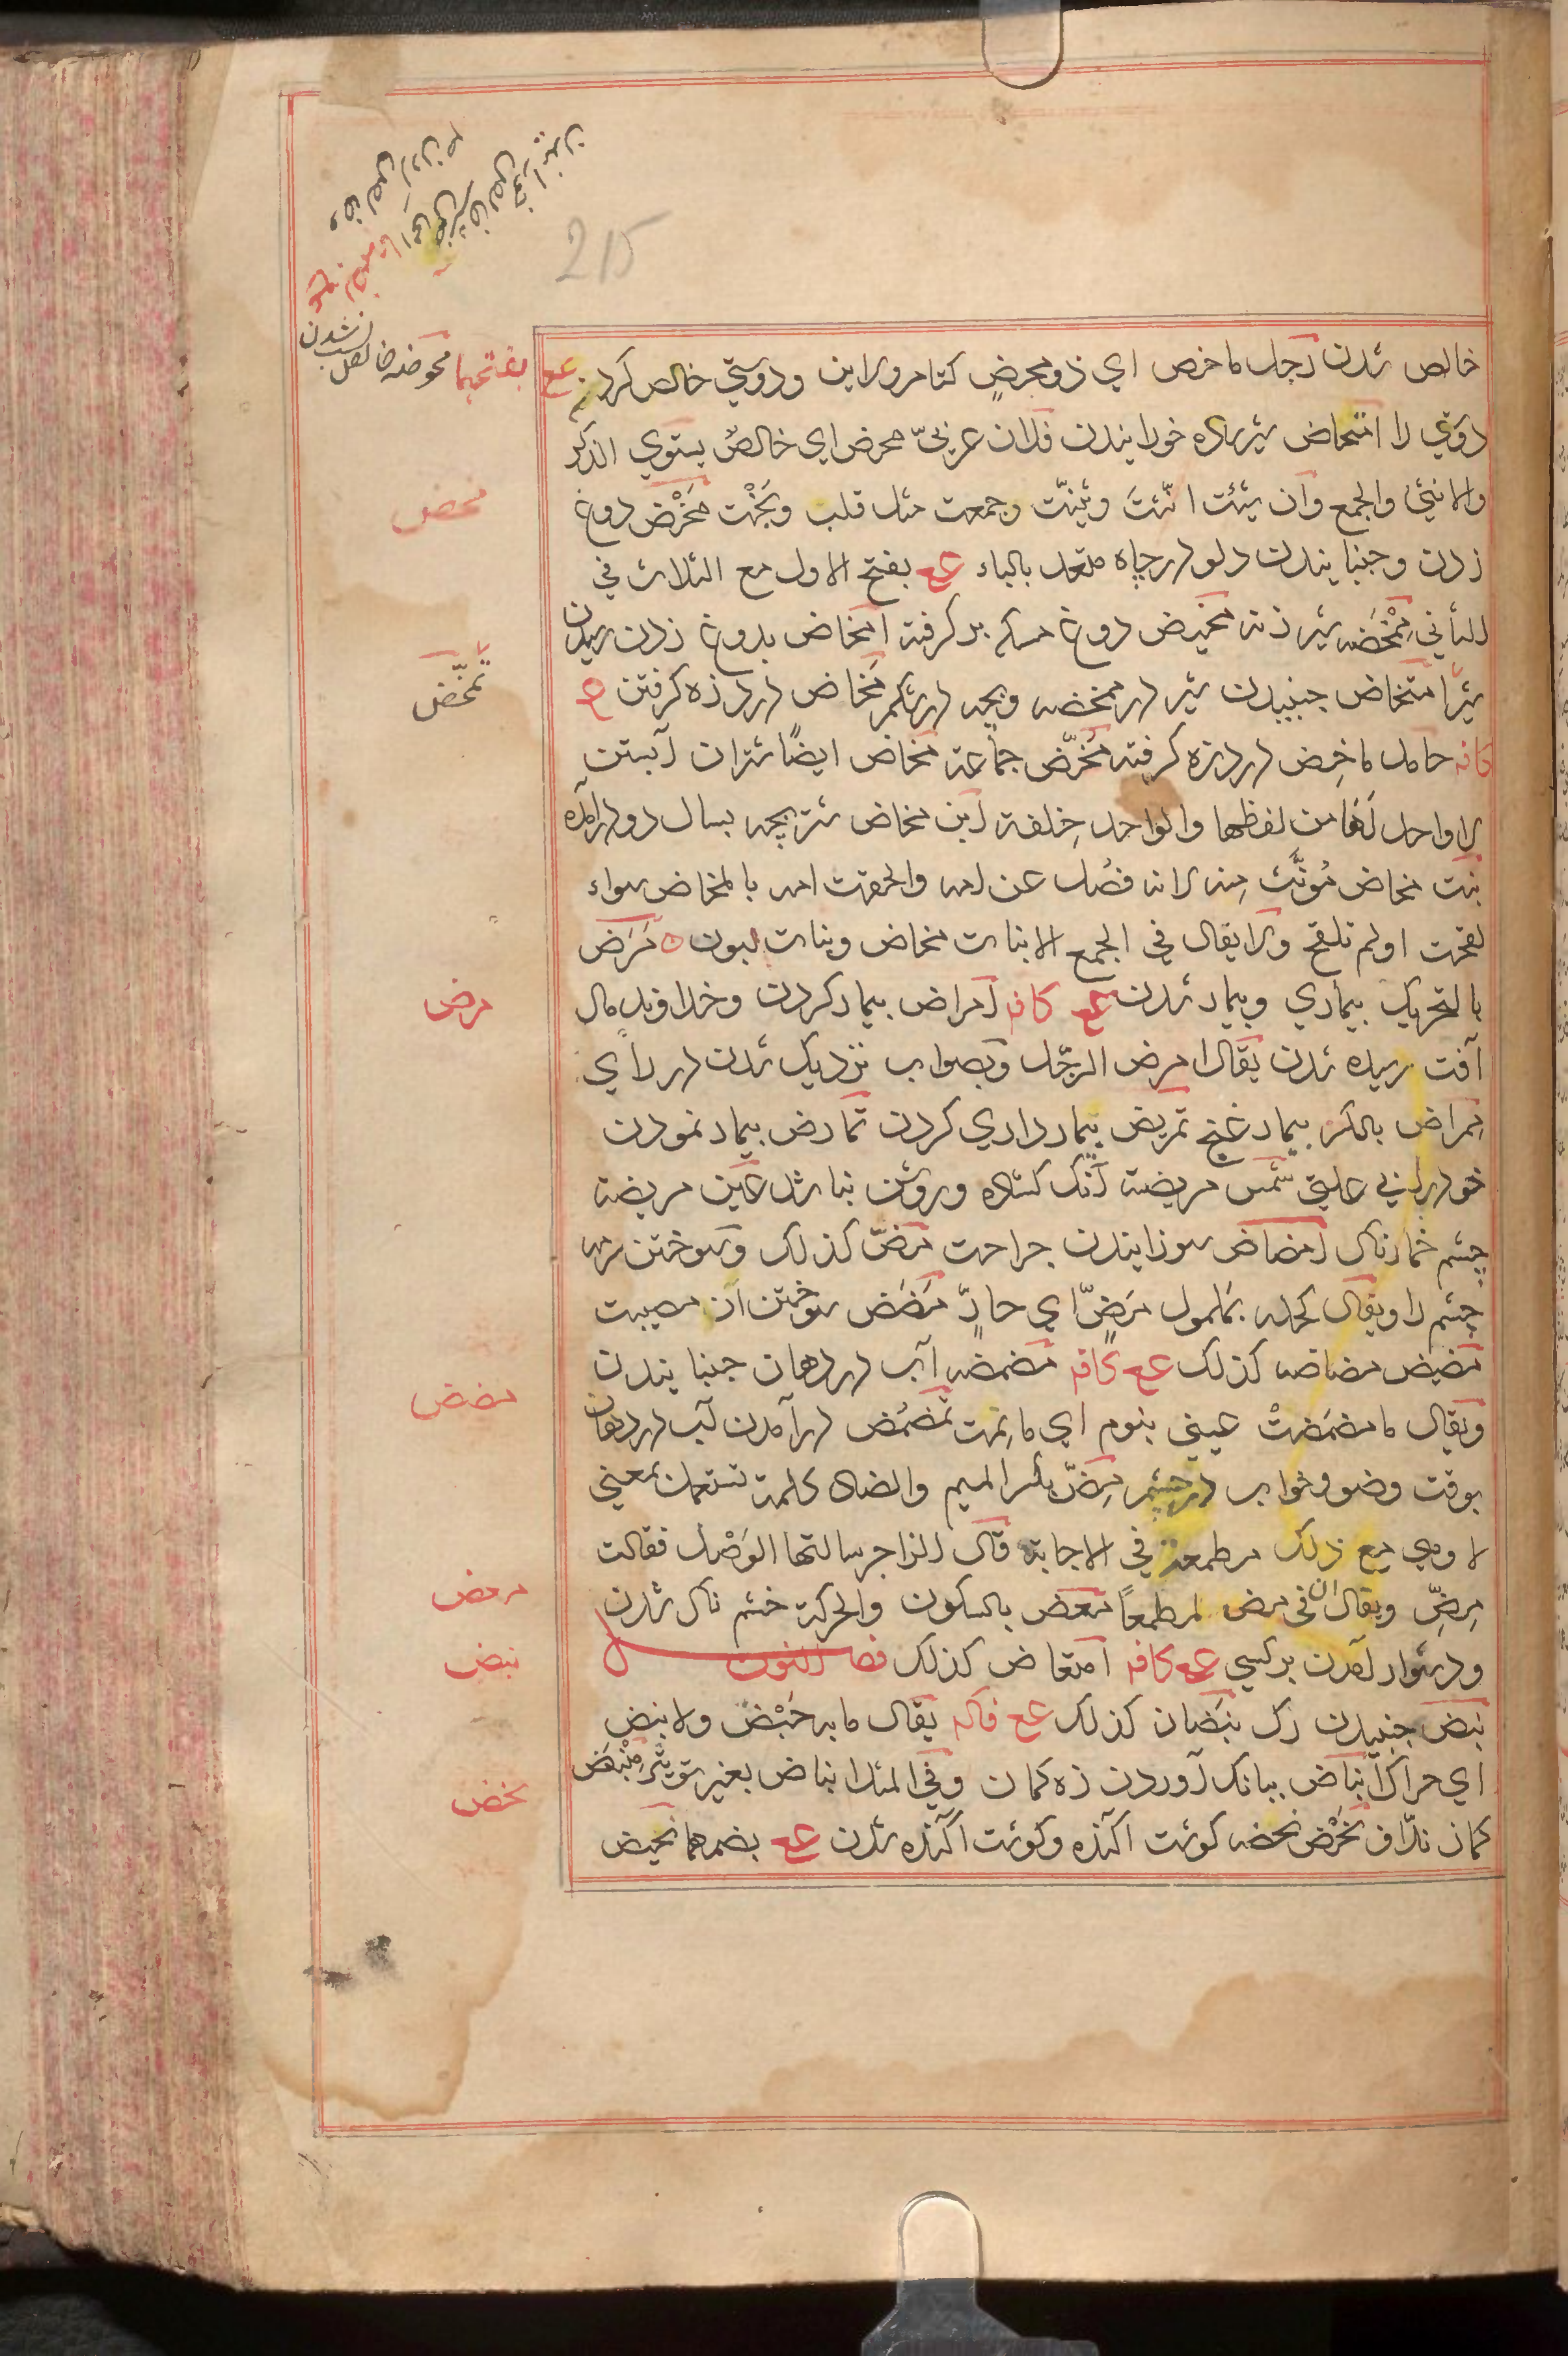 215
خالص شدن رجل ماحض اي ذو محض كتامر ولابن ودوستي خالص كردن عع بفتحهما محوضه خالص نسب شدن
دوستي را امتحاض شير ساده خورانيدن فلان عربيّ محض اي خالصٌ يستوي الذكر
والانثي والجمع وان شئت انّثتَ وثنيّت وجمعت مثل قلب وبَحْت مَخْض دوغ
محض
زدن وجنبانيدن دلو در چاه متعد بالباء عع بفتح الاول مع الثلاث في
الثاني مِمْخَضه شير زنه مخيض دوغ مسكه بر گرفته امخاض بدوغ زدن رسيدن
شير امتخاض جنبيدن شير در ممخضه وبچه در شكم مخاض درد زه گرفتن ع
تمخّض
كافه حامل ماخِض درد زه گرفته مُخّض جماعة مخاض ايضًا شتران آبستن
لا واحد لها من لفظها والواحد خِلفة ابن مخاض شتر بچه بسال دو درآمده
بنت مخاض مُونَّث منه لانه فصُل عن امه والحقت امه بالمخاض سواء
لقحت او لم تلقح ولا يقال في الجمع الا بنات مخاض وبنات لبون ٥ مَرَض
بالتحريك بيماري وبيمار شدن عع كافه امراض بيمار كردن وخداوند مال
مرض
آفت رسيده شدن يقال امرض الرجّل وبصواب نزديك شدن در راي
مِمراض بالكسر بيمار غنج تمريض بيمار داري كردن تمارض بيمار نمودن
خود را بي علتي شمس مريضة آنك گشاده وروشن نباشد عين مريضة
چشم خمارناك امضاض سوزانيدن جراحت مَضّ كذلك وسوختن سرمه
چشم را ويقال كحله بملمول مَضٍّ اي حارٍّ مَضَض سوختن از مصيبت
مضيض مضاضه كذلك عع كافه مضمضه آب در دهان جنبانيدن
مضض
ويقال ما مضمَضتْ عيني بنوم اي ما نمت تمضمُض درآمدن آب در دهان
بوقت وضو وخواب در چشم مِضّ بكسر الميم والضاد كلمة تستعمل بمعني
لا وهي مع ذلك مطمعة في الاجابة قال الراجز سالتها الوَصْل فقالت
مِضِّ ويقال ان في مض لمطمعاً معض بالسكون والحركة خشم ناك شدن
معض
ودشوار آمدن بر كسي عع كافه امتعاض كذلك فصل النون
نبض
نبض جنبيدن رگ نبَضان كذلك عع فاكه يقال ما به حَبَْض ولا نبض
اي حراك انباض ببانك آوردن زه كمان وفي المثل انباض بغير توتير مِنْبَض
كمان ندّاف نَحْض نحضه گوشت آكنده وگوشت آكنده شدن عع بضمهما نحيض
نحض